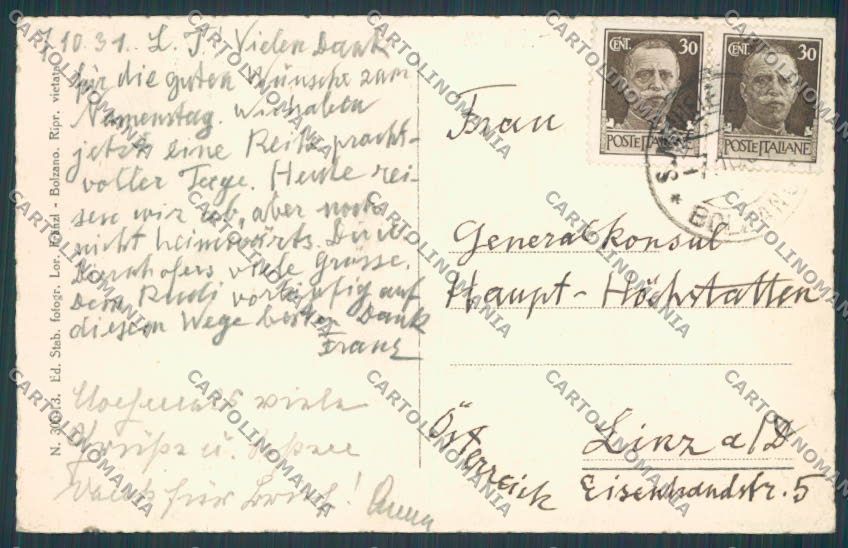 7.10.31. L. T! Vielen Dank
für die guten Wünsche zum
Namenstag. Wir haben
jetzt eine Reihe pracht-
voller Tage. Heute rei-
sen wir ab, aber noch
nicht heimwärts. Dir u.
viele Grüsse.
Dem Rudi vorläufig auf
diesem Wege besten Dank
Franz
Nochmals viele
Grüße u.
Dank für Brief! Anna
N. 30013. Ed. Stab. fotogr. Lor. Fränzl - Bolzano. Ripr. vietata
CENT. 30
POSTE ITALIANE
CENT. 30
POSTE ITALIANE
BOLZANO
Frau
Generalkonsul
Haupt-Höchstatten
Linz a/D
Eisenhandstr. 5
Österreich
CARTOLINOMANIA